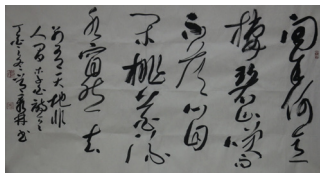 問余何意
棲碧山笑
而不答心自
閑桃花流
水窅然去
別有天地非
人間
書